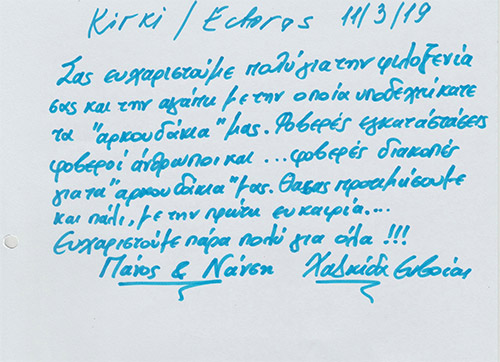 Kirki / Ectoras 11/3/19
Σας ευχαριστούμε πολύ για την φιλοξενία
σας και την αγάπη με την οποία υποδεχτήκατε
τα "αρκουδάκια" μας. Φοβερές εγκαταστάσεις
φοβεροί άνθρωποι και ... φοβερές διακοπές
για τα "αρκουδάκια" μας. Θα σας προτιμήσουμε
και πάλι, με την πρώτη ευκαιρία....
Ευχαριστούμε πάρα πολύ για όλα !!!
Πάνος & Νάνση Χαλκίδα Ευβοίας